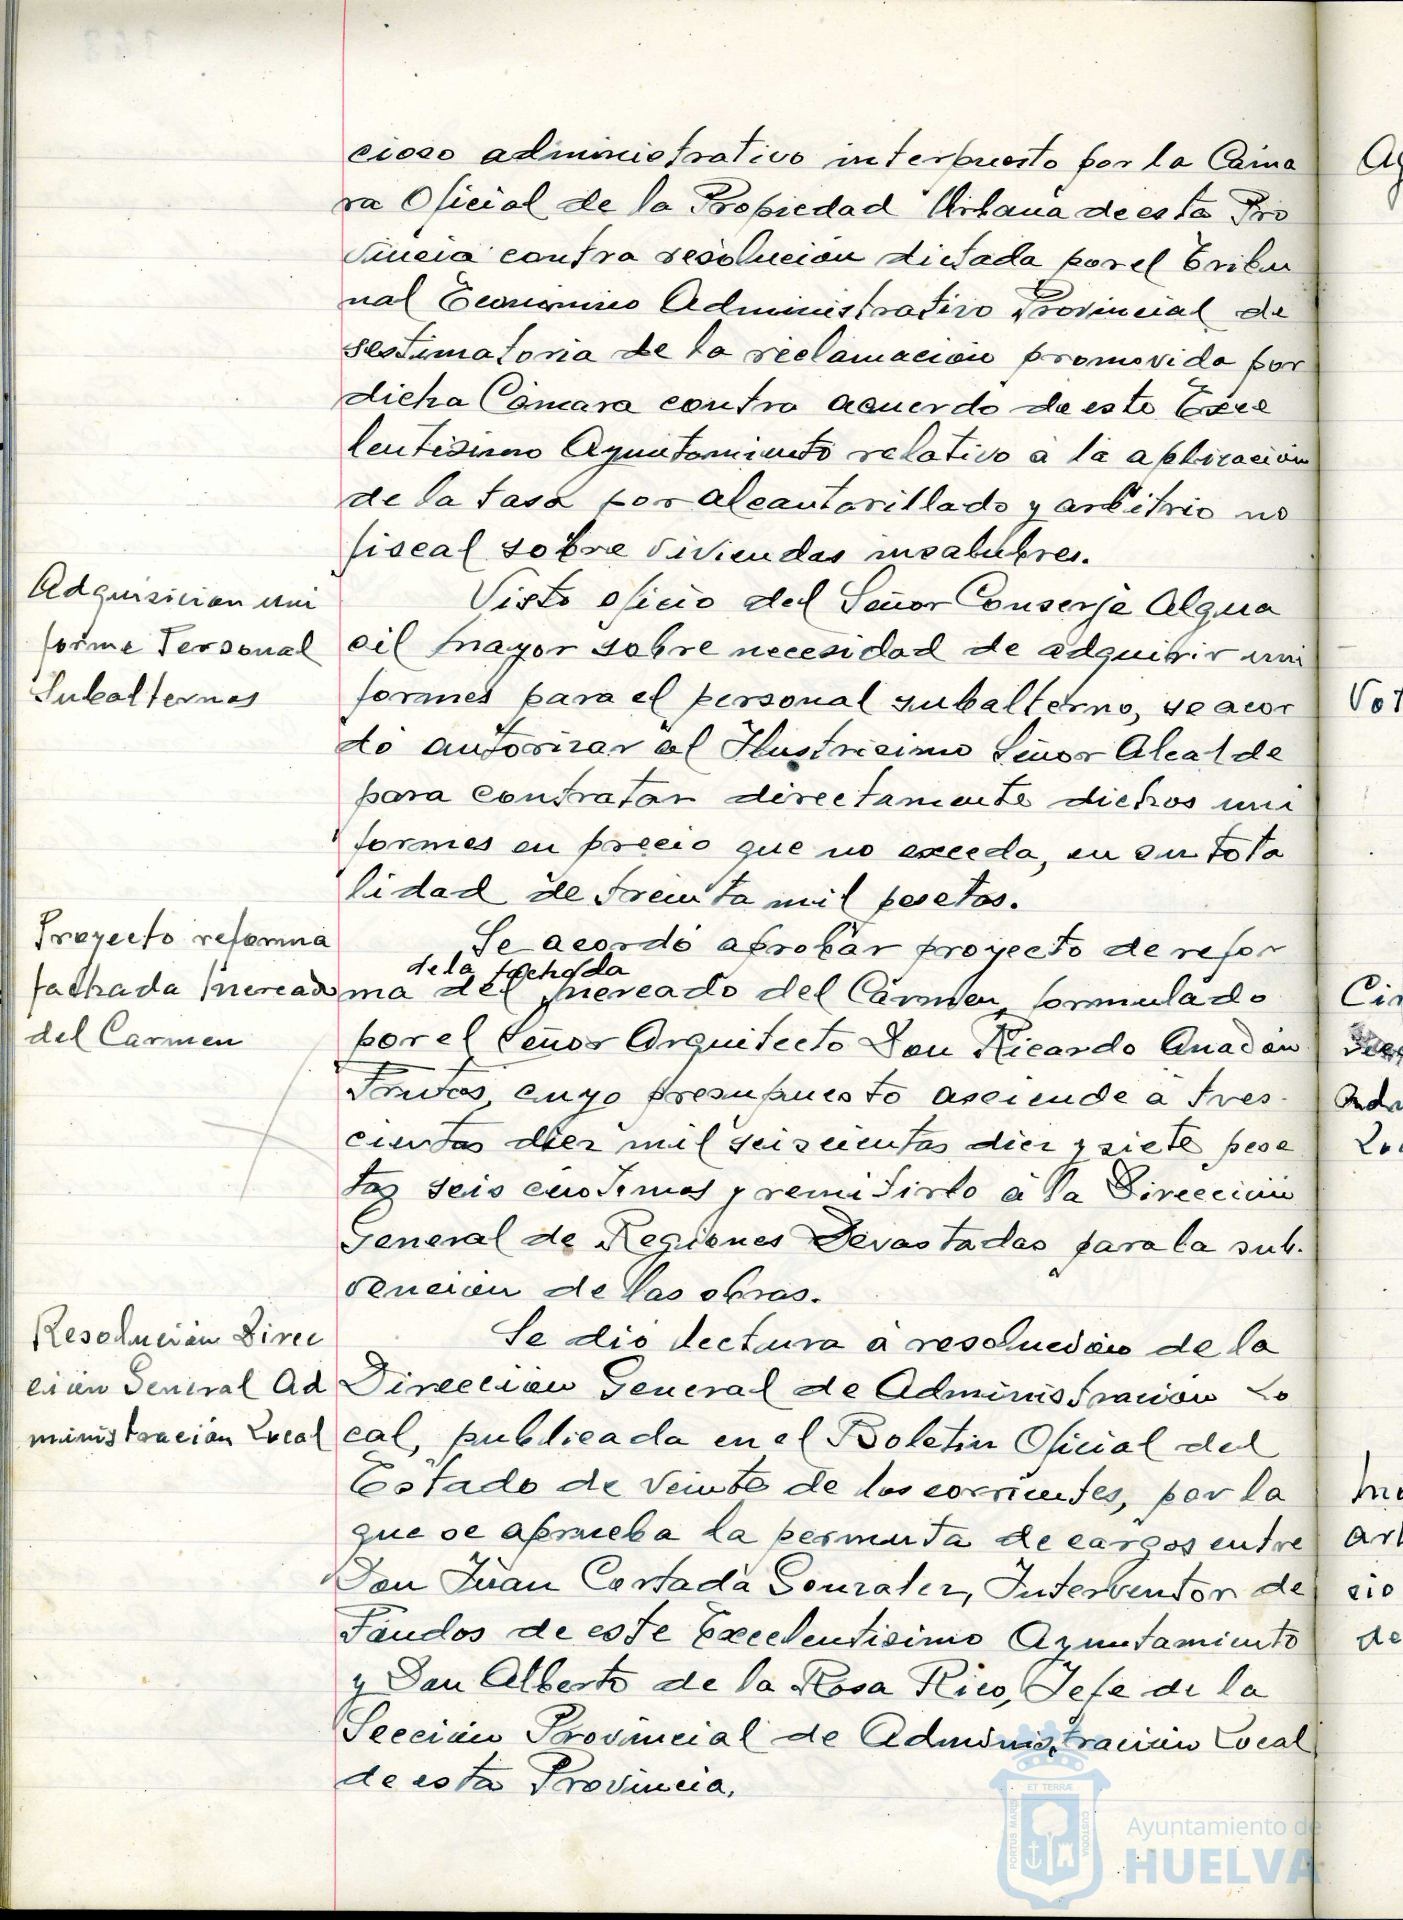 cioso administrativo interpuesto por la Cáma
ra Oficial de la Propiedad Urbana de esta Pro
vincia contra resolución dictada por el Tribu
nal Económico Administrativo Provincial de
sestimatoria de la reclamación promovida por
dicha Cámara contra acuerdo de este Exce
lentísimo Ayuntamiento relativo a la aplicación
de la tasa por alcantarillado y arbitrio no
fiscal sobre viviendas insalubres.
Adquisición uni
forme Personal
Subalternos
Visto oficio del Señor Conserje Algua
cil mayor sobre necesidad de adquirir uni
formes para el personal subalterno, se acor
dó autorizar al Ilustrísimo Señor Alcalde
para contratar directamente dichos uni
formes en precio que no exceda, en su tota
lidad de treinta mil pesetas.
Proyecto reforma
fachada Mercado
del Carmen
Se acordó aprobar proyecto de refor
de la fachada
ma del Mercado del Carmen, formulado
por el Señor Arquitecto Don Ricardo Anadón
Frutos, cuyo presupuesto asciende a tres-
cientas diez mil seiscientas diez y siete pese
tas seis céntimos y remitirlo a la Dirección
General de Regiones Devastadas para la sub-
vención de las obras.
Resolución Direc
ción General Ad
ministración Local
Se dió lectura a resolución de la
Dirección General de Administración Lo
cal, publicada en el Boletín Oficial del
Estado de veinte de los corrientes, por la
que se aprueba la permuta de cargos entre
Don Juan Cortada Gonzalez, Interventor de
Fondos de este Excelentísimo Ayuntamiento
y Don Alberto de la Rosa Rico, Jefe de la
Sección Provincial de Administración Local
de esta Provincia.
PORTUS MARIS
ET TERRÆ
CUSTODIA
Ayuntamiento de
HUELVA